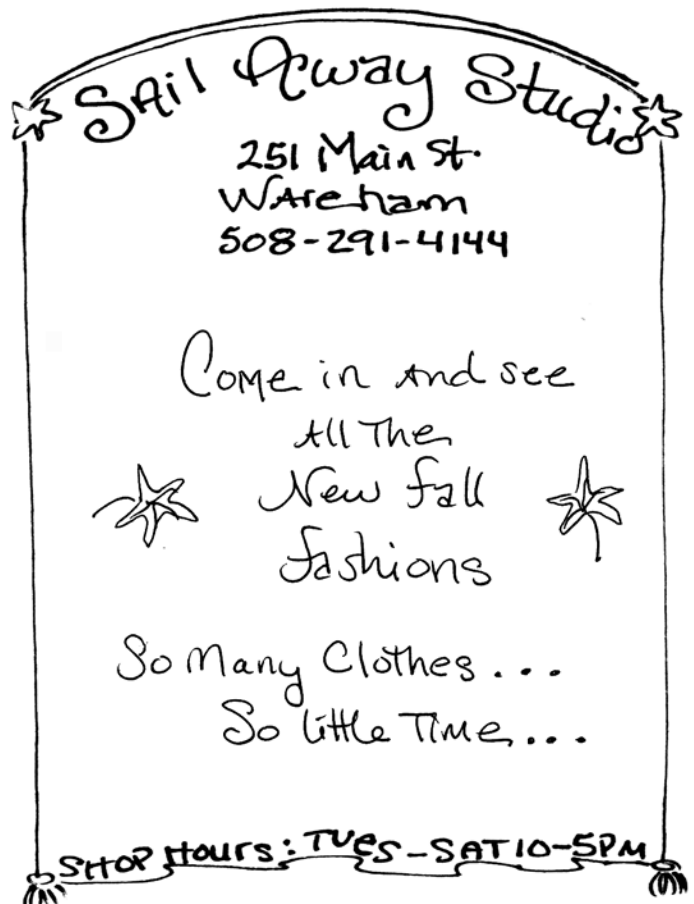 Sail Away Studio
251 Main St.
Wareham
508-291-4144
Come in and see
All The
New Fall
Fashions
So Many Clothes...
So little Time...
SHOP HOURS: TUES-SAT 10-5PM